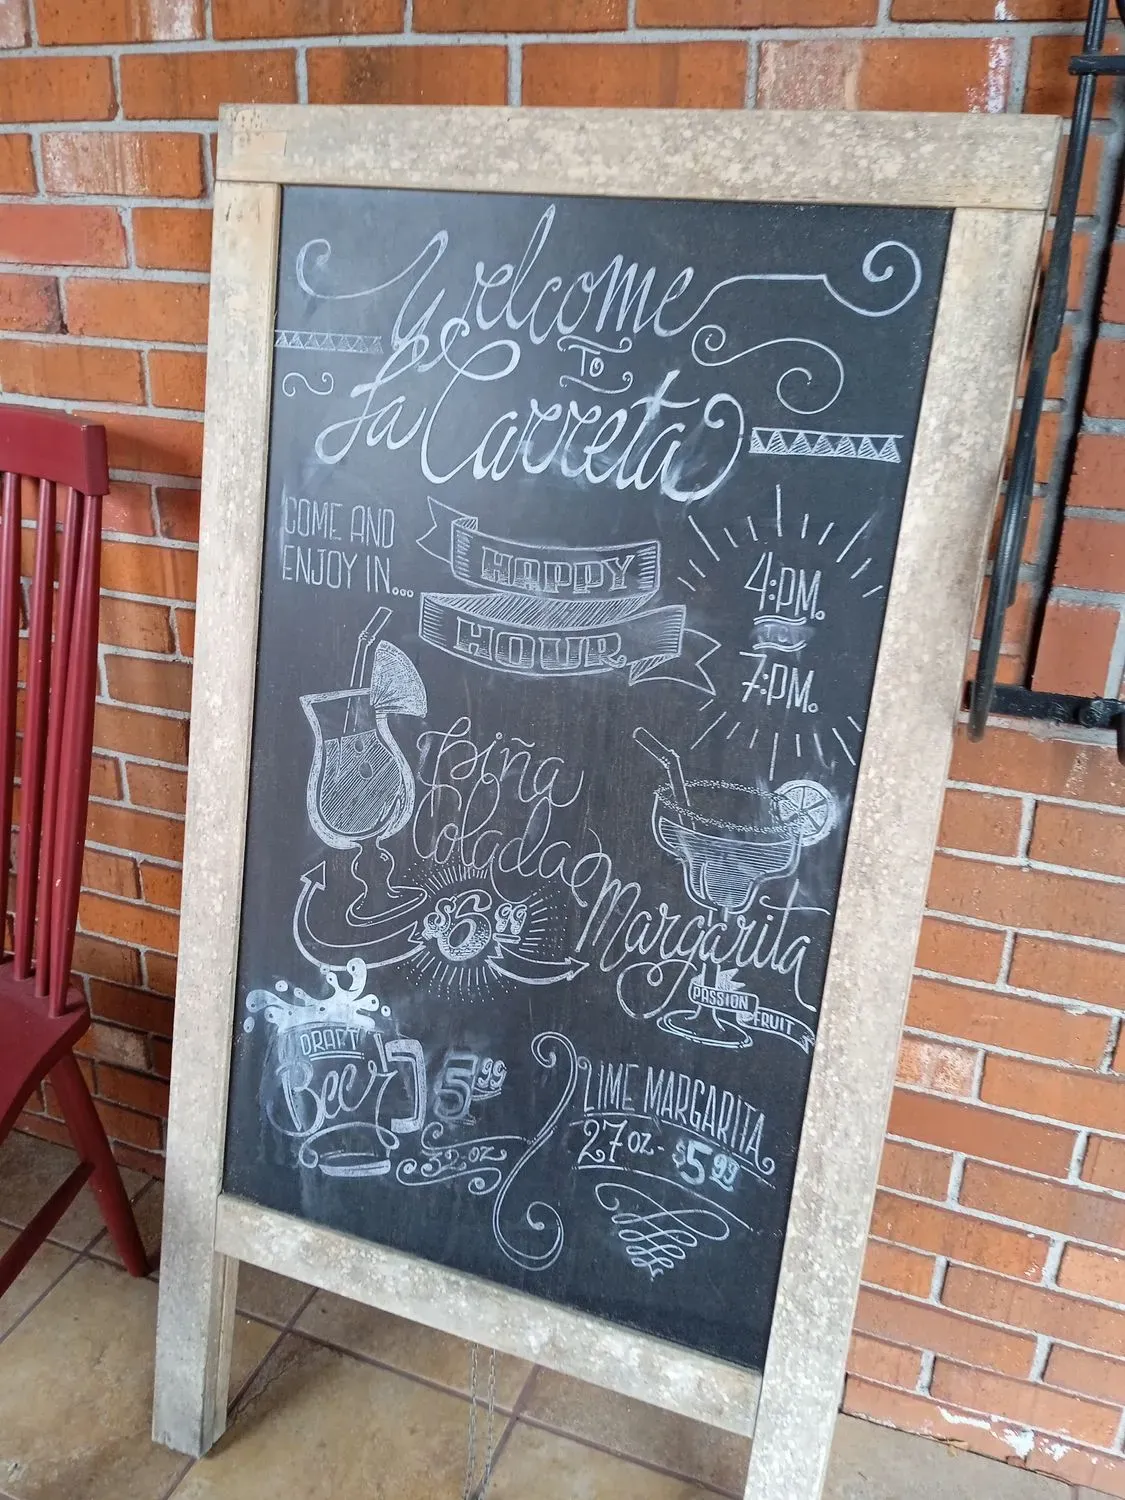 Welcome
TO
La Carreta
COME AND
ENJOY IN...
HAPPY
HOUR
4:PM.
TO
7:PM.
Piña
Colada
$6.99
Margarita
PASSION
FRUIT
DRAFT
Beer
5.99
32 oz
LIME MARGARITA
27 oz- $5.99